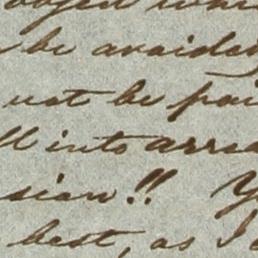 be avoided
not be pai
ll into arrea
sion!! Y
best, as I